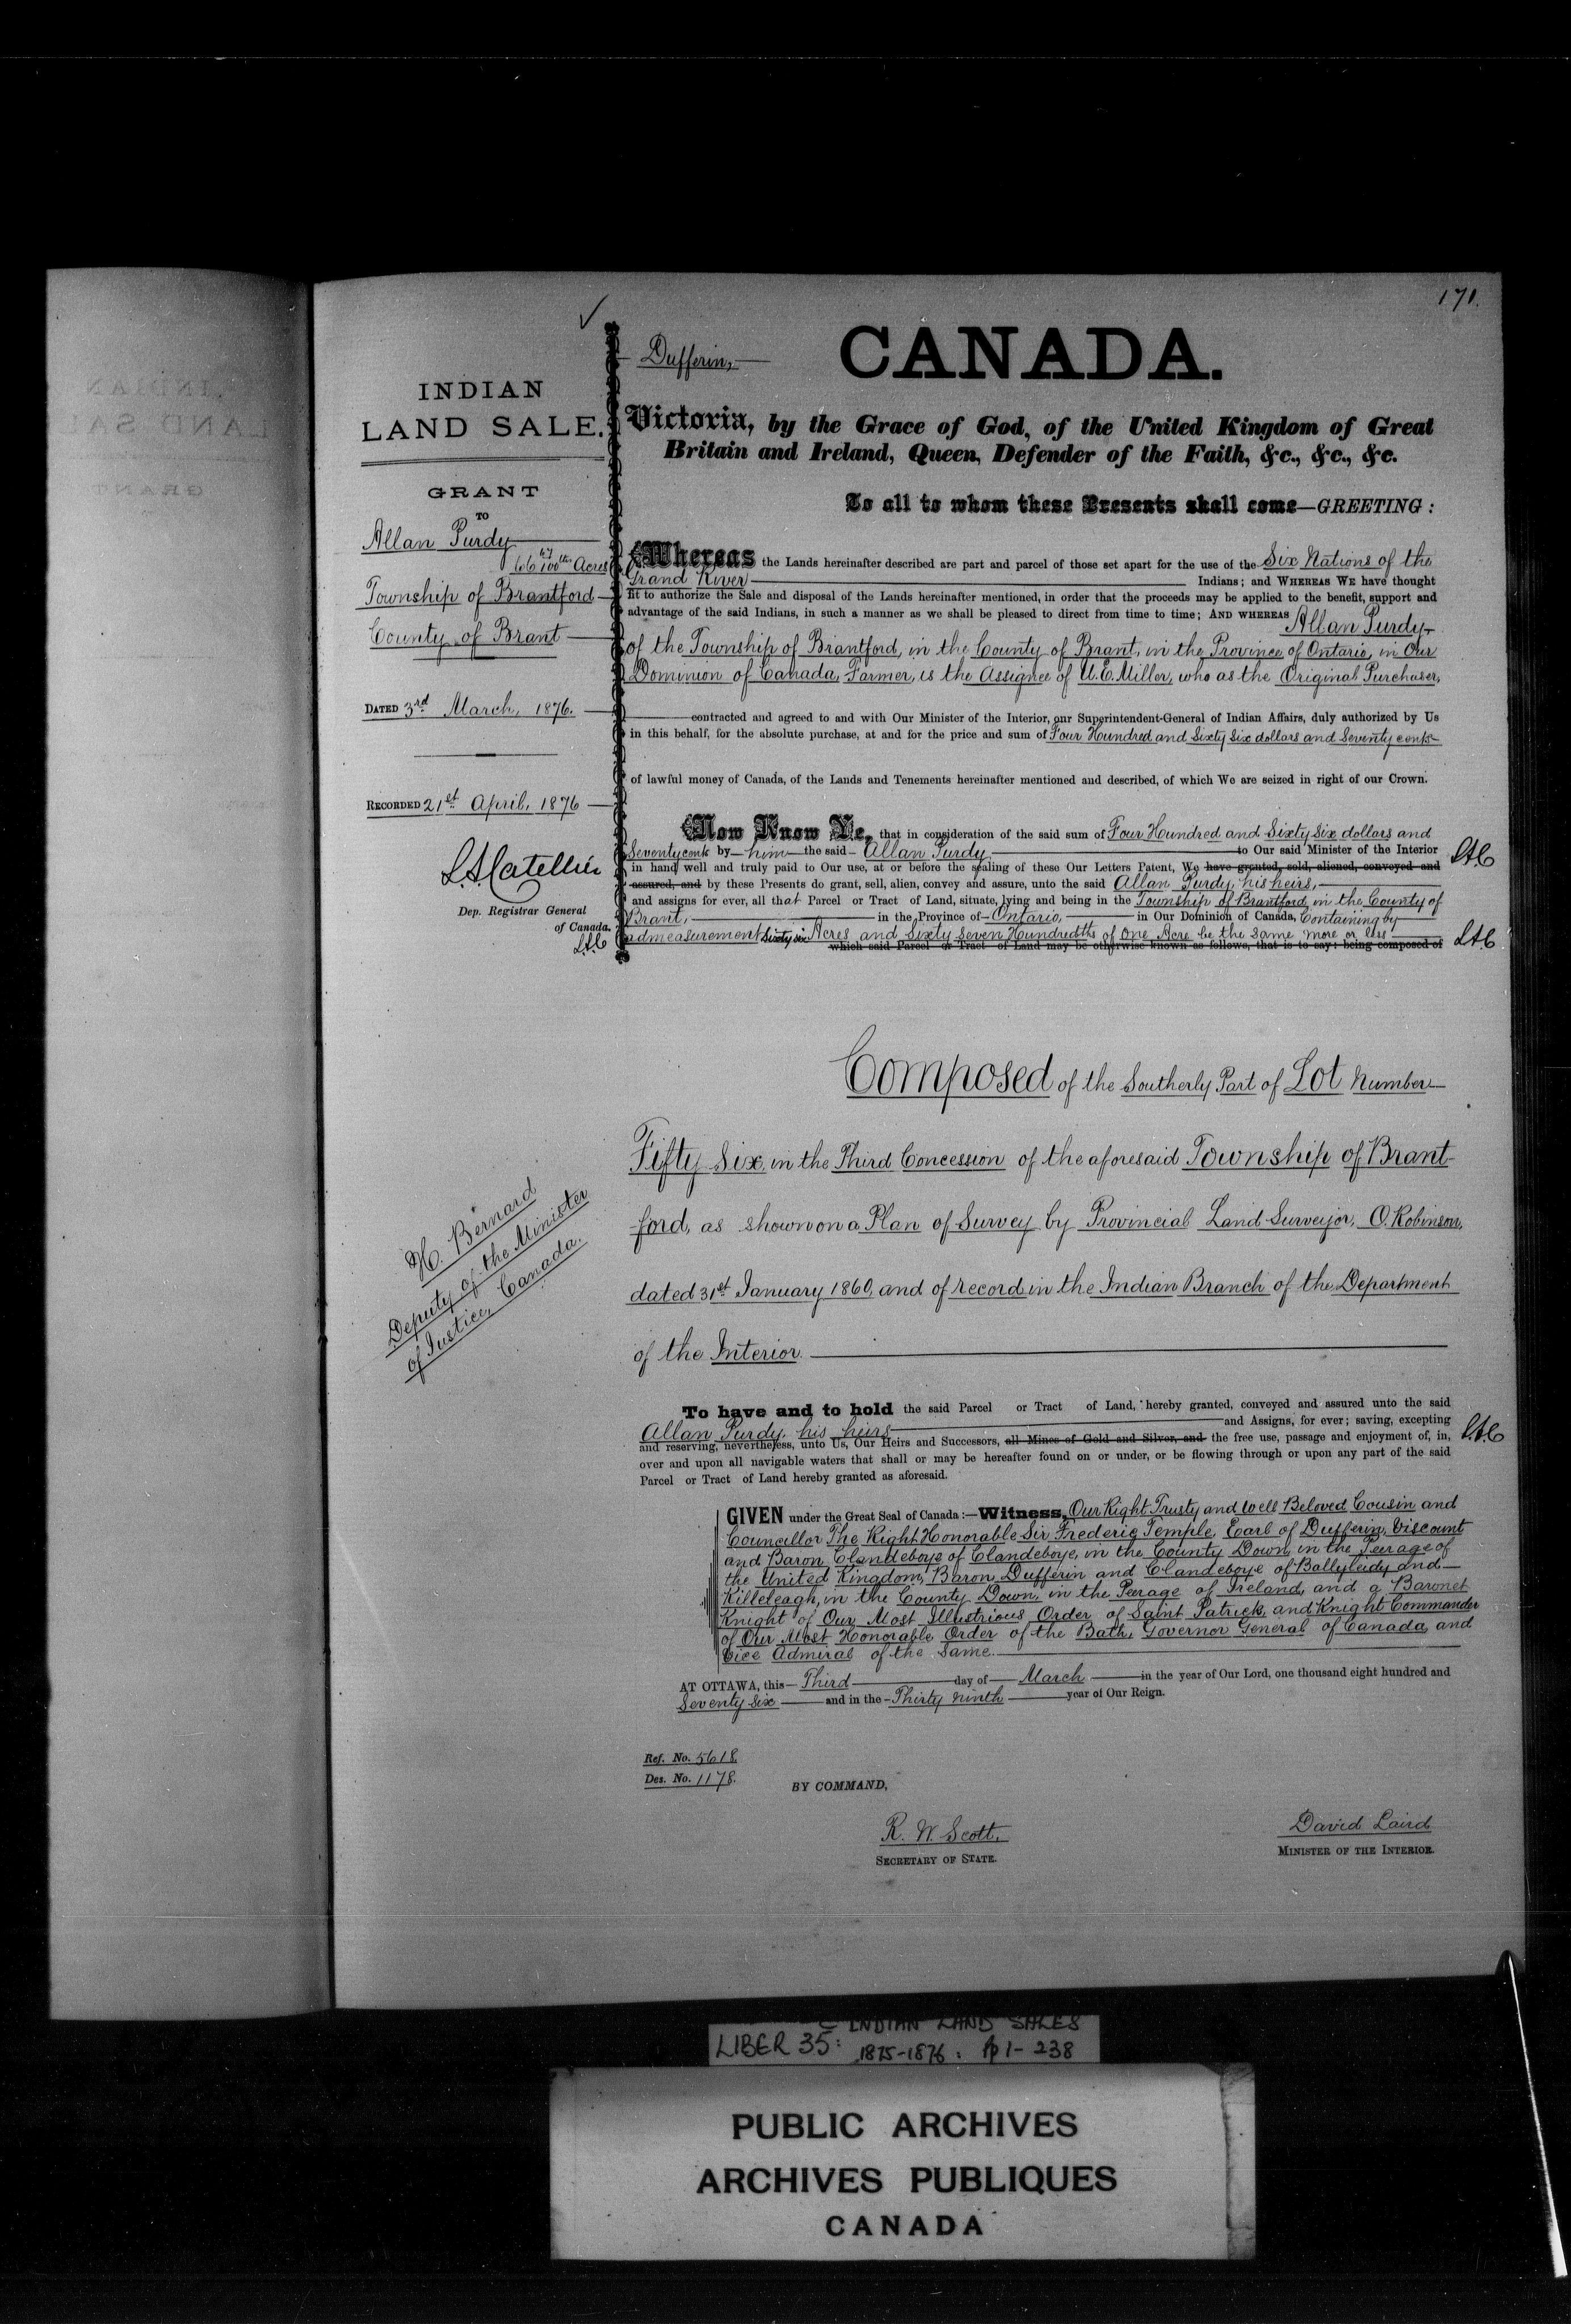 171.
Dufferin,
CANADA.
INDIAN
LAND SALE.
GRANT
TO
Allan Purdy
66 67/100ths Acres
Township of Brantford
County of Brant
DATED 3rd March, 1876.
RECORDED 21st April, 1876
L.A. Catellier
Dep. Registrar General
of Canada.
L.A.C
H. Bernard
Deputy of the Minister
of Justice, Canada.
Victoria, by the Grace of God, of the United Kingdom of Great
Britain and Ireland, Queen, Defender of the Faith, &c., &c., &c.
To all to whom these Presents shall come—GREETING:
Whereas the Lands hereinafter described are part and parcel of those set apart for the use of the Six Nations of the
Grand River Indians; and WHEREAS WE have thought
fit to authorize the Sale and disposal of the Lands hereinafter mentioned, in order that the proceeds may be applied to the benefit, support and
advantage of the said Indians, in such a manner as we shall be pleased to direct from time to time; AND WHEREAS Allan Purdy
of the Township of Brantford, in the County of Brant, in the Province of Ontario, in Our
Dominion of Canada, Farmer, is the Assignee of U.C. Miller, who as the Original Purchaser,
contracted and agreed to and with Our Minister of the Interior, our Superintendent-General of Indian Affairs, duly authorized by Us
in this behalf, for the absolute purchase, at and for the price and sum of Four Hundred and Sixty Six dollars and Seventy cents
of lawful money of Canada, of the Lands and Tenements hereinafter mentioned and described, of which We are seized in right of our Crown.
Now Know Ye, that in consideration of the said sum of Four Hundred and Sixty Six dollars and
Seventy cents by him the said Allan Purdy to Our said Minister of the Interior
in hand well and truly paid to Our use, at or before the sealing of these Our Letters Patent, We have granted, sold, aliened, conveyed and L.A.C
assured, and by these Presents do grant, sell, alien, convey and assure, unto the said Allan Purdy, his heirs,
and assigns for ever, all that Parcel or Tract of Land, situate, lying and being in the Township of Brantford in the County of
Brant, in the Province of Ontario, in Our Dominion of Canada, Containing by
admeasurement Sixty six Acres and Sixty Seven Hundredths of One Acre be the same more or less
which said Parcel or Tract of Land may be otherwise known as follows, that is to say: being composed of L.A.C
Composed of the Southerly Part of Lot Number
Fifty Six, in the Third Concession of the aforesaid Township of Brant-
ford, as shown on a Plan of Survey by Provincial Land Surveyor, O. Robinson,
dated 31st January 1860, and of record in the Indian Branch of the Department
of the Interior.
To have and to hold the said Parcel or Tract of Land, hereby granted, conveyed and assured unto the said
Allan Purdy, his heirs and Assigns, for ever; saving, excepting
and reserving, nevertheless, unto Us, Our Heirs and Successors, all Mines of Gold and Silver, and the free use, passage and enjoyment of, in, L.A.C
over and upon all navigable waters that shall or may be hereafter found on or under, or be flowing through or upon any part of the said
Parcel or Tract of Land hereby granted as aforesaid.
GIVEN under the Great Seal of Canada:—Witness, Our Right Trusty and Well Beloved Cousin and
Councillor The Right Honorable Sir Frederic Temple, Earl of Dufferin, Viscount
and Baron Clandeboye of Clandeboye, in the County Down, in the Peerage of
the United Kingdom, Baron Dufferin and Clandeboye of Ballyleidy and
Killeleagh, in the County Down, in the Peerage of Ireland, and a Baronet
Knight of Our Most Illustrious Order of Saint Patrick, and Knight Commander
of Our Most Honorable Order of the Bath, Governor General of Canada, and
Vice Admiral of the same.
AT OTTAWA, this Third day of March in the year of Our Lord, one thousand eight hundred and
Seventy Six and in the Thirty ninth year of Our Reign.
Ref. No. 5618.
Des. No. 1178.
BY COMMAND,
R. W. Scott,
SECRETARY OF STATE.
David Laird
MINISTER OF THE INTERIOR.
INDIAN LAND SALES
LIBER 35: 1875-1876: pp 1-238
PUBLIC ARCHIVES
ARCHIVES PUBLIQUES
CANADA